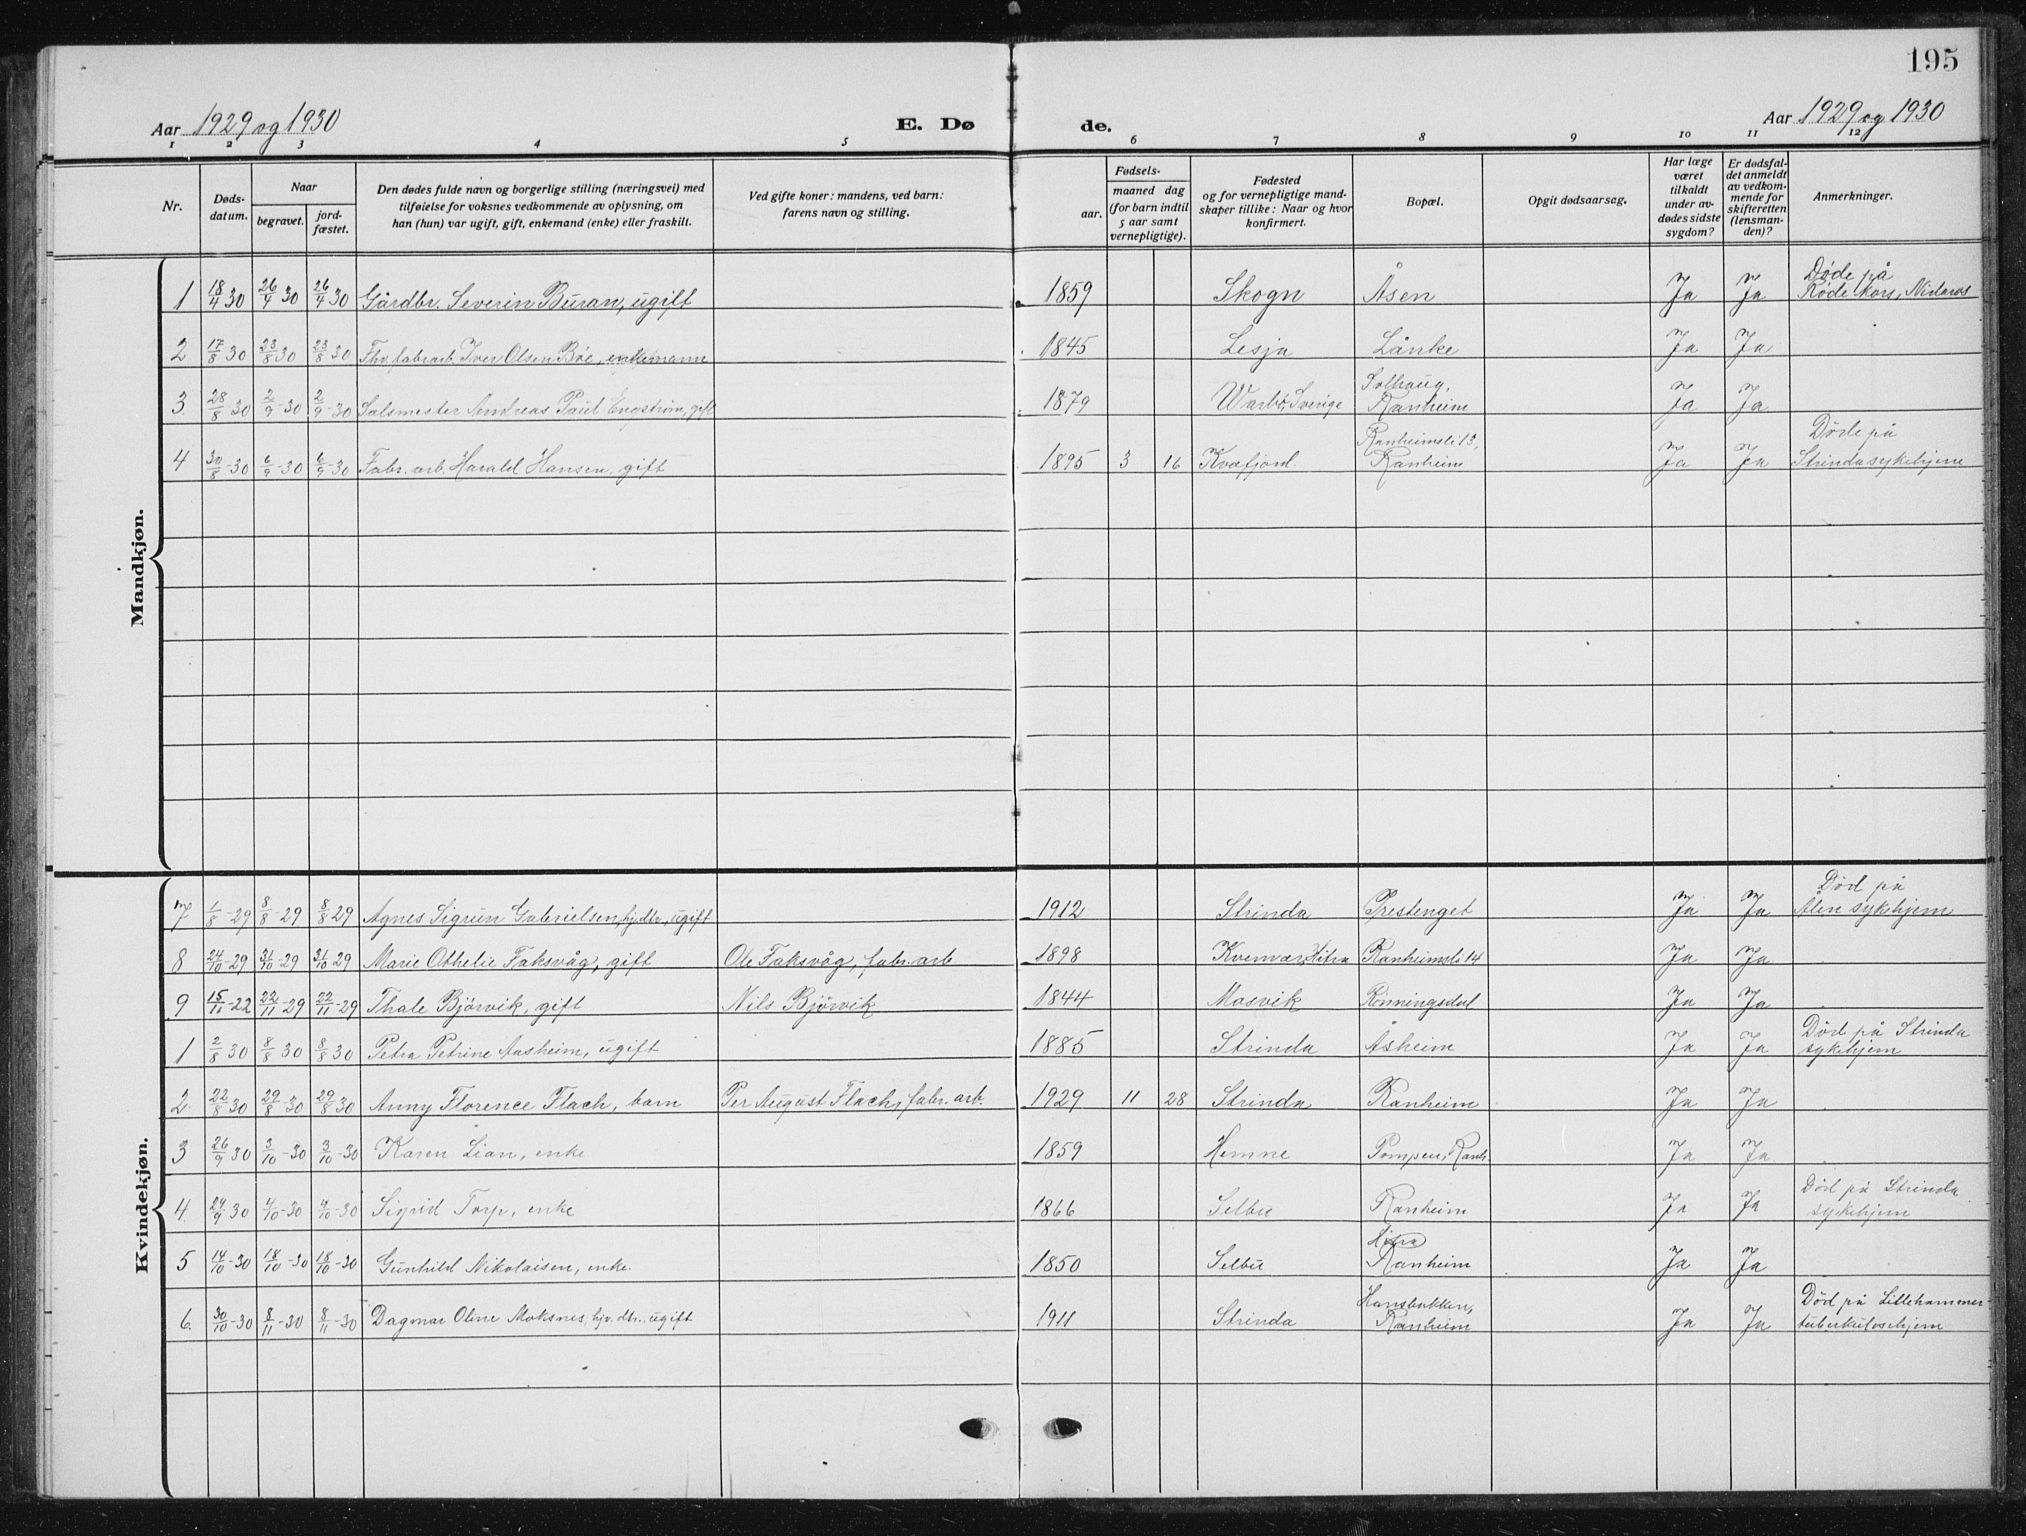 195
Aar 1929 og 1930
E. Dø de.
Aar 1929 og 1930
1 2 3 4 5 6 7 8 9 10 11 12
Nr.
Døds-
datum.
Naar
begravet.
jord-
fæstet.
Den dødes fulde navn og borgerlige stilling (næringsvei) med
tilføielse for voksnes vedkommende av oplysning, om
han (hun) var ugift, gift, enkemand (enke) eller fraskilt.
Ved gifte koner: mandens, ved barn:
farens navn og stilling.
Fødsels-
aar.
maaned dag
(for barn indtil
5 aar samt
vernepligtige).
Fødested
og for vernepligtige mand-
skaper tillike: Naar og hvor
konfirmert.
Bopæl.
Opgit dødsaarsag.
Har læge
været
tilkaldt
under av-
dødes sidste
sygdom?
Er dødsfal-
det anmeldt
av vedkom-
mende for
skifteretten
(lensman-
den)?
Anmerkninger.
Mandkjøn.
1 18/4 30 26/4 30 26/4 30 Gårdbr. Severin Buran, ugift 1859 Skogn Åsen Ja Ja Døde på Røde Kors, Nidaros
2 17/8 30 23/8 30 23/8 30 Fhv. fabr.arb. Iver Olsen Bøe, enkemann 1845 Lesja Lånke Ja Ja
3. 28/8 30 2/9-30 2/9-30 Salsmester Andreas Paul Engstrøm, gift 1879 Warbö, Sverige Solhaug, Ranheim Ja Ja
4 30/8-30 6/9-30 6/9-30 Fabr.arb. Harald Hansen, gift 1895 3 16 Kvæfjord Ranheimsli 13, Ranheim Ja Ja Døde på Strinda sykehjem
Kvindekjøn.
7 1/8-29 8/8-29 8/8 29 Agnes Sigrun Gabrielsen, hj.dtr., ugift 1912 Strinda Prestenget Ja Ja Død på Ålen sykehjem
8 24/10-29 31/10-29 31/10 29 Marie Othelie Faksvåg, gift Ole Faksvåg, fabr.arb 1898 Kvenvær, Hitra Ranheimsli 14 Ja Ja
9 15/11-22 22/11-29 22/11-29 Thale Bjørvik, gift Nils Bjørvik 1844 Mosvik Rønningsdal Ja Ja
1 2/8 30 8/8 30 8/8 30 Petra Petrine Aasheim, ugift 1885 Strinda Åsheim Ja Ja Død på Strinda sykehjem
2. 22/8 30 29/8-30 29/8 30 Anny Florence Flach, barn Per August Flach, fabr.arb. 1929 11 28 Strinda Ranheim Ja Ja
3 26/9 30 3/10-30 3/10-30 Karen Lian, enke 1859 Hemne Pompen, Ranh. Ja Ja
4. 24/9 30 4/10-30 4/10-30 Sigrid Torp, enke 1866 Selbu Ranheim Ja Ja Død på Strinda sykehjem
5 14/10-30 18/10-30 18/10-30 Gunhild Nikolaisen, enke. 1850 Selbu Hitra Ranheim Ja Ja
6. 30/10-30 8/11-30 8/11-30 Dagmar Oline Moksnes, hjv. dtr. ugift 1911 Strinda Hansbakken, Ranheim Ja Ja Død på Lillehammer tuberkulosehjem